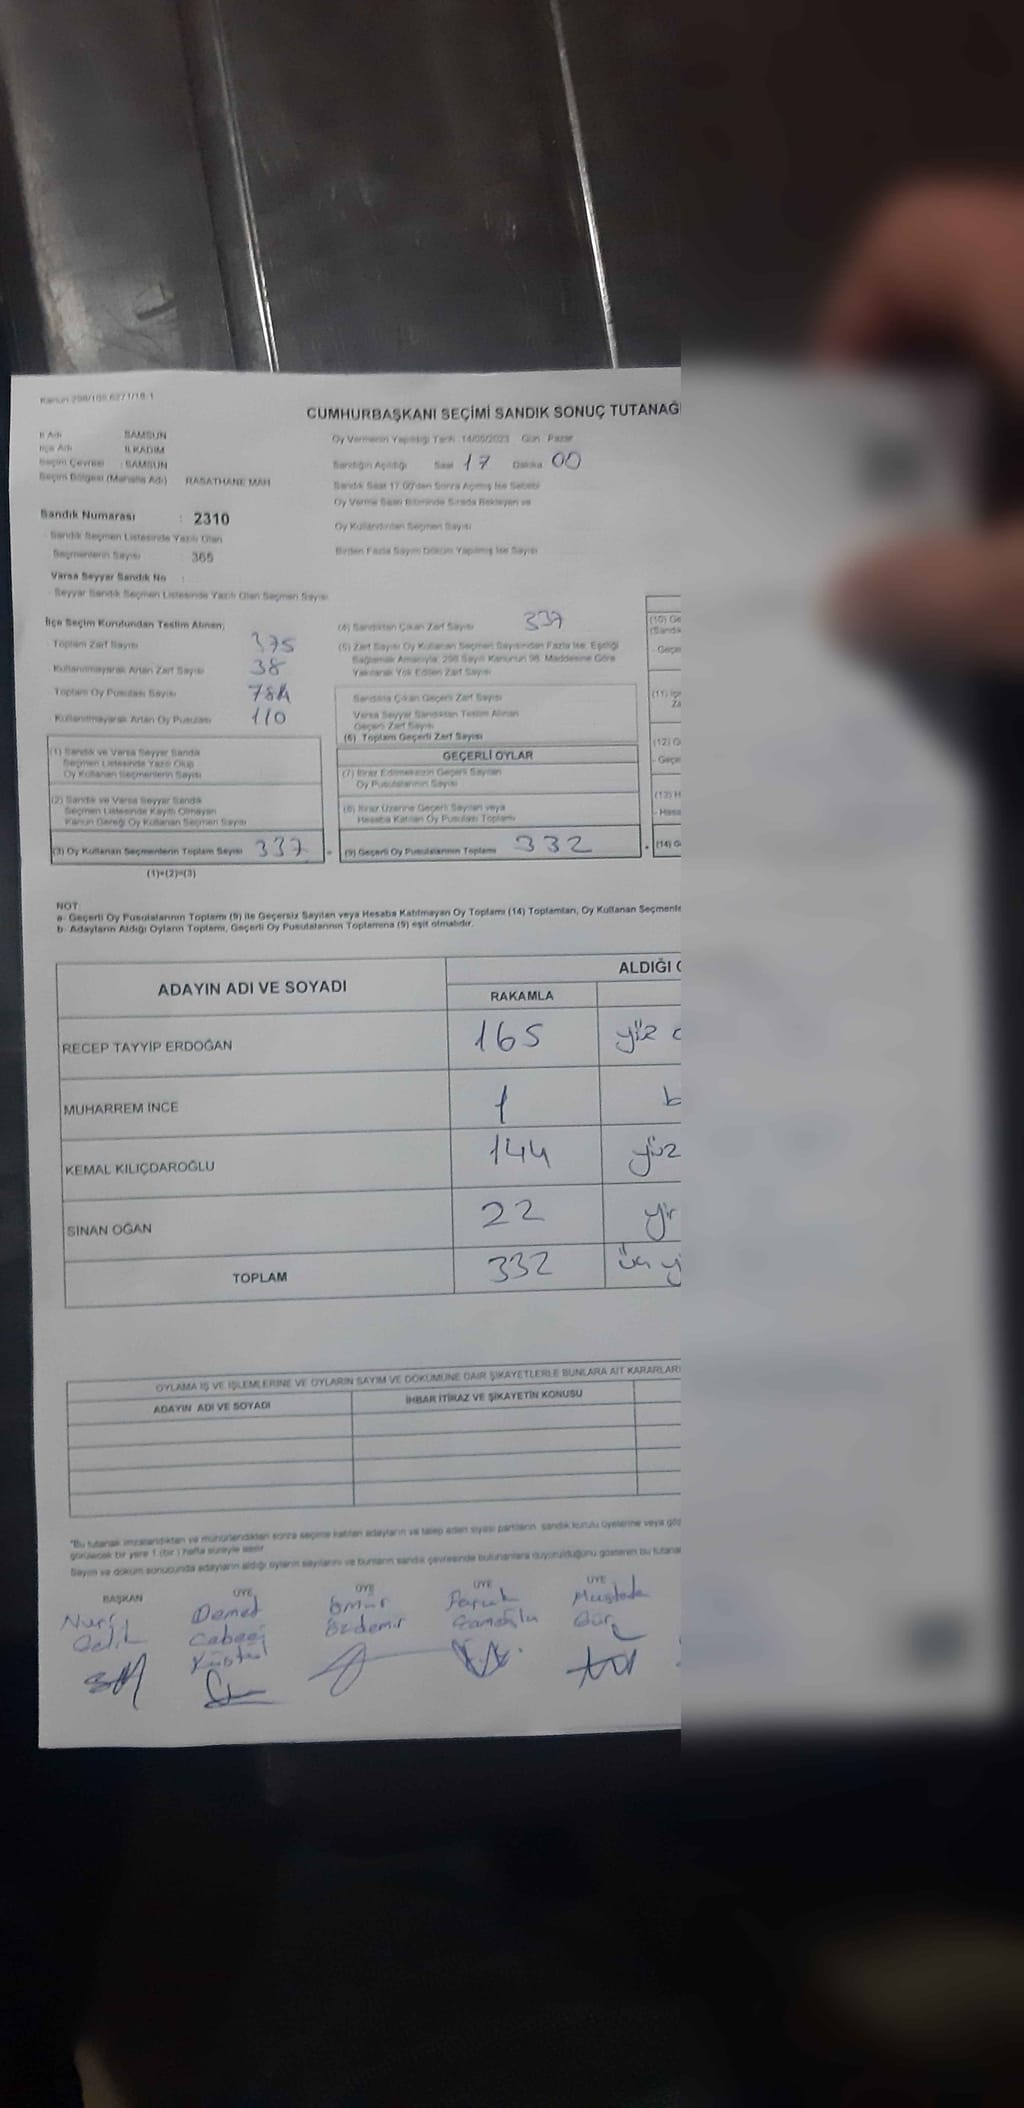 Kanun 298/105,6271/18-1
CUMHURBAŞKANI SEÇİMİ SANDIK SONUÇ TUTANAĞ
İl Adı SAMSUN
İlçe Adı İLKADIM
Seçim Çevresi : SAMSUN
Seçim Bölgesi (Mahalle Adı) RASATHANE MAH
Oy Vermenin Yapıldığı Tarih :14/05/2023 Gün : Pazar
Sandığın Açıldığı Saat 17 Dakika 00
Sandık Saat 17.00'den Sonra Açılmış İse Sebebi
Oy Verme Saati Bitiminde Sırada Bekleyen ve
Oy Kullandırılan Seçmen Sayısı
Birden Fazla Sayım Döküm Yapılmış İse Sayısı
Sandık Numarası : 2310
- Sandık Seçmen Listesinde Yazılı Olan
Seçmenlerin Sayısı : 365
Varsa Seyyar Sandık No :
- Seyyar Sandık Seçmen Listesinde Yazılı Olan Seçmen Sayısı
İlçe Seçim Kurulundan Teslim Alınan;
- Toplam Zarf Sayısı 375
- Kullanılmayarak Artan Zarf Sayısı 38
- Toplam Oy Pusulası Sayısı
- Kullanılmayarak Artan Oy Pusulası 110
(1) Sandık ve Varsa Seyyar Sandık
Seçmen Listesinde Yazılı Olup
Oy Kullanan Seçmenlerin Sayısı
(2) Sandık ve Varsa Seyyar Sandık
Seçmen Listesinde Kayıtlı Olmayan
Kanun Gereği Oy Kullanan Seçmen Sayısı
(3) Oy Kullanan Seçmenlerin Toplam Sayısı 337
(1)+(2)=(3)
(4) Sandıktan Çıkan Zarf Sayısı 337
(5) Zarf Sayısı Oy Kullanan Seçmen Sayısından Fazla İse, Eşitliği
Sağlamak Amacıyla, 298 Sayılı Kanunun 98. Maddesine Göre
Yakılarak Yok Edilen Zarf Sayısı
Sandıkta Çıkan Geçerli Zarf Sayısı
Varsa Seyyar Sandıktan Teslim Alınan
Geçerli Zarf Sayısı
(6) Toplam Geçerli Zarf Sayısı
GEÇERLİ OYLAR
(7) İtiraz Edilmeksizin Geçerli Sayılan
Oy Pusulalarının Sayısı
(8) İtiraz Üzerine Geçerli Sayılan veya
Hesaba Katılan Oy Pusulası Toplamı
(9) Geçerli Oy Pusulalarının Toplamı 332
(10) Ge
(Sandık
- Geçe
(11) İşç
Za
(12) G
- Geçe
(13) H
- Hesa
(14) G
NOT:
a- Geçerli Oy Pusulalarının Toplamı (9) ile Geçersiz Sayılan veya Hesaba Katılmayan Oy Toplamı (14) Toplamları, Oy Kullanan Seçmenle
b- Adayların Aldığı Oyların Toplamı, Geçerli Oy Pusulalarının Toplamına (9) eşit olmalıdır.
ADAYIN ADI VE SOYADI ALDIĞI
RAKAMLA
RECEP TAYYİP ERDOĞAN 165 yüz
MUHARREM İNCE 1 b
KEMAL KILIÇDAROĞLU 144 yüz
SİNAN OĞAN 22 yir
TOPLAM 332 üç y
OYLAMA İŞ VE İŞLEMLERİNE VE OYLARIN SAYIM VE DÖKÜMÜNE DAİR ŞİKAYETLERLE BUNLARA AİT KARARLAR
ADAYIN ADI VE SOYADI İHBAR İTİRAZ VE ŞİKAYETİN KONUSU
"Bu tutanak imzalandıktan ve mühürlendikten sonra seçime katılan adayların ve talep eden siyasi partilerin, sandık kurulu üyelerine veya göz
görülecek bir yere 1 (bir) hafta süreyle asılır.
Sayım ve döküm sonucunda adayların aldığı oyların sayılarını ve bunların sandık çevresinde bulunanlara duyurulduğunu gösteren bu tutana
BAŞKAN ÜYE ÜYE ÜYE ÜYE
Nuri Demet Ömür Faruk Mustafa
Çelik Özdemir